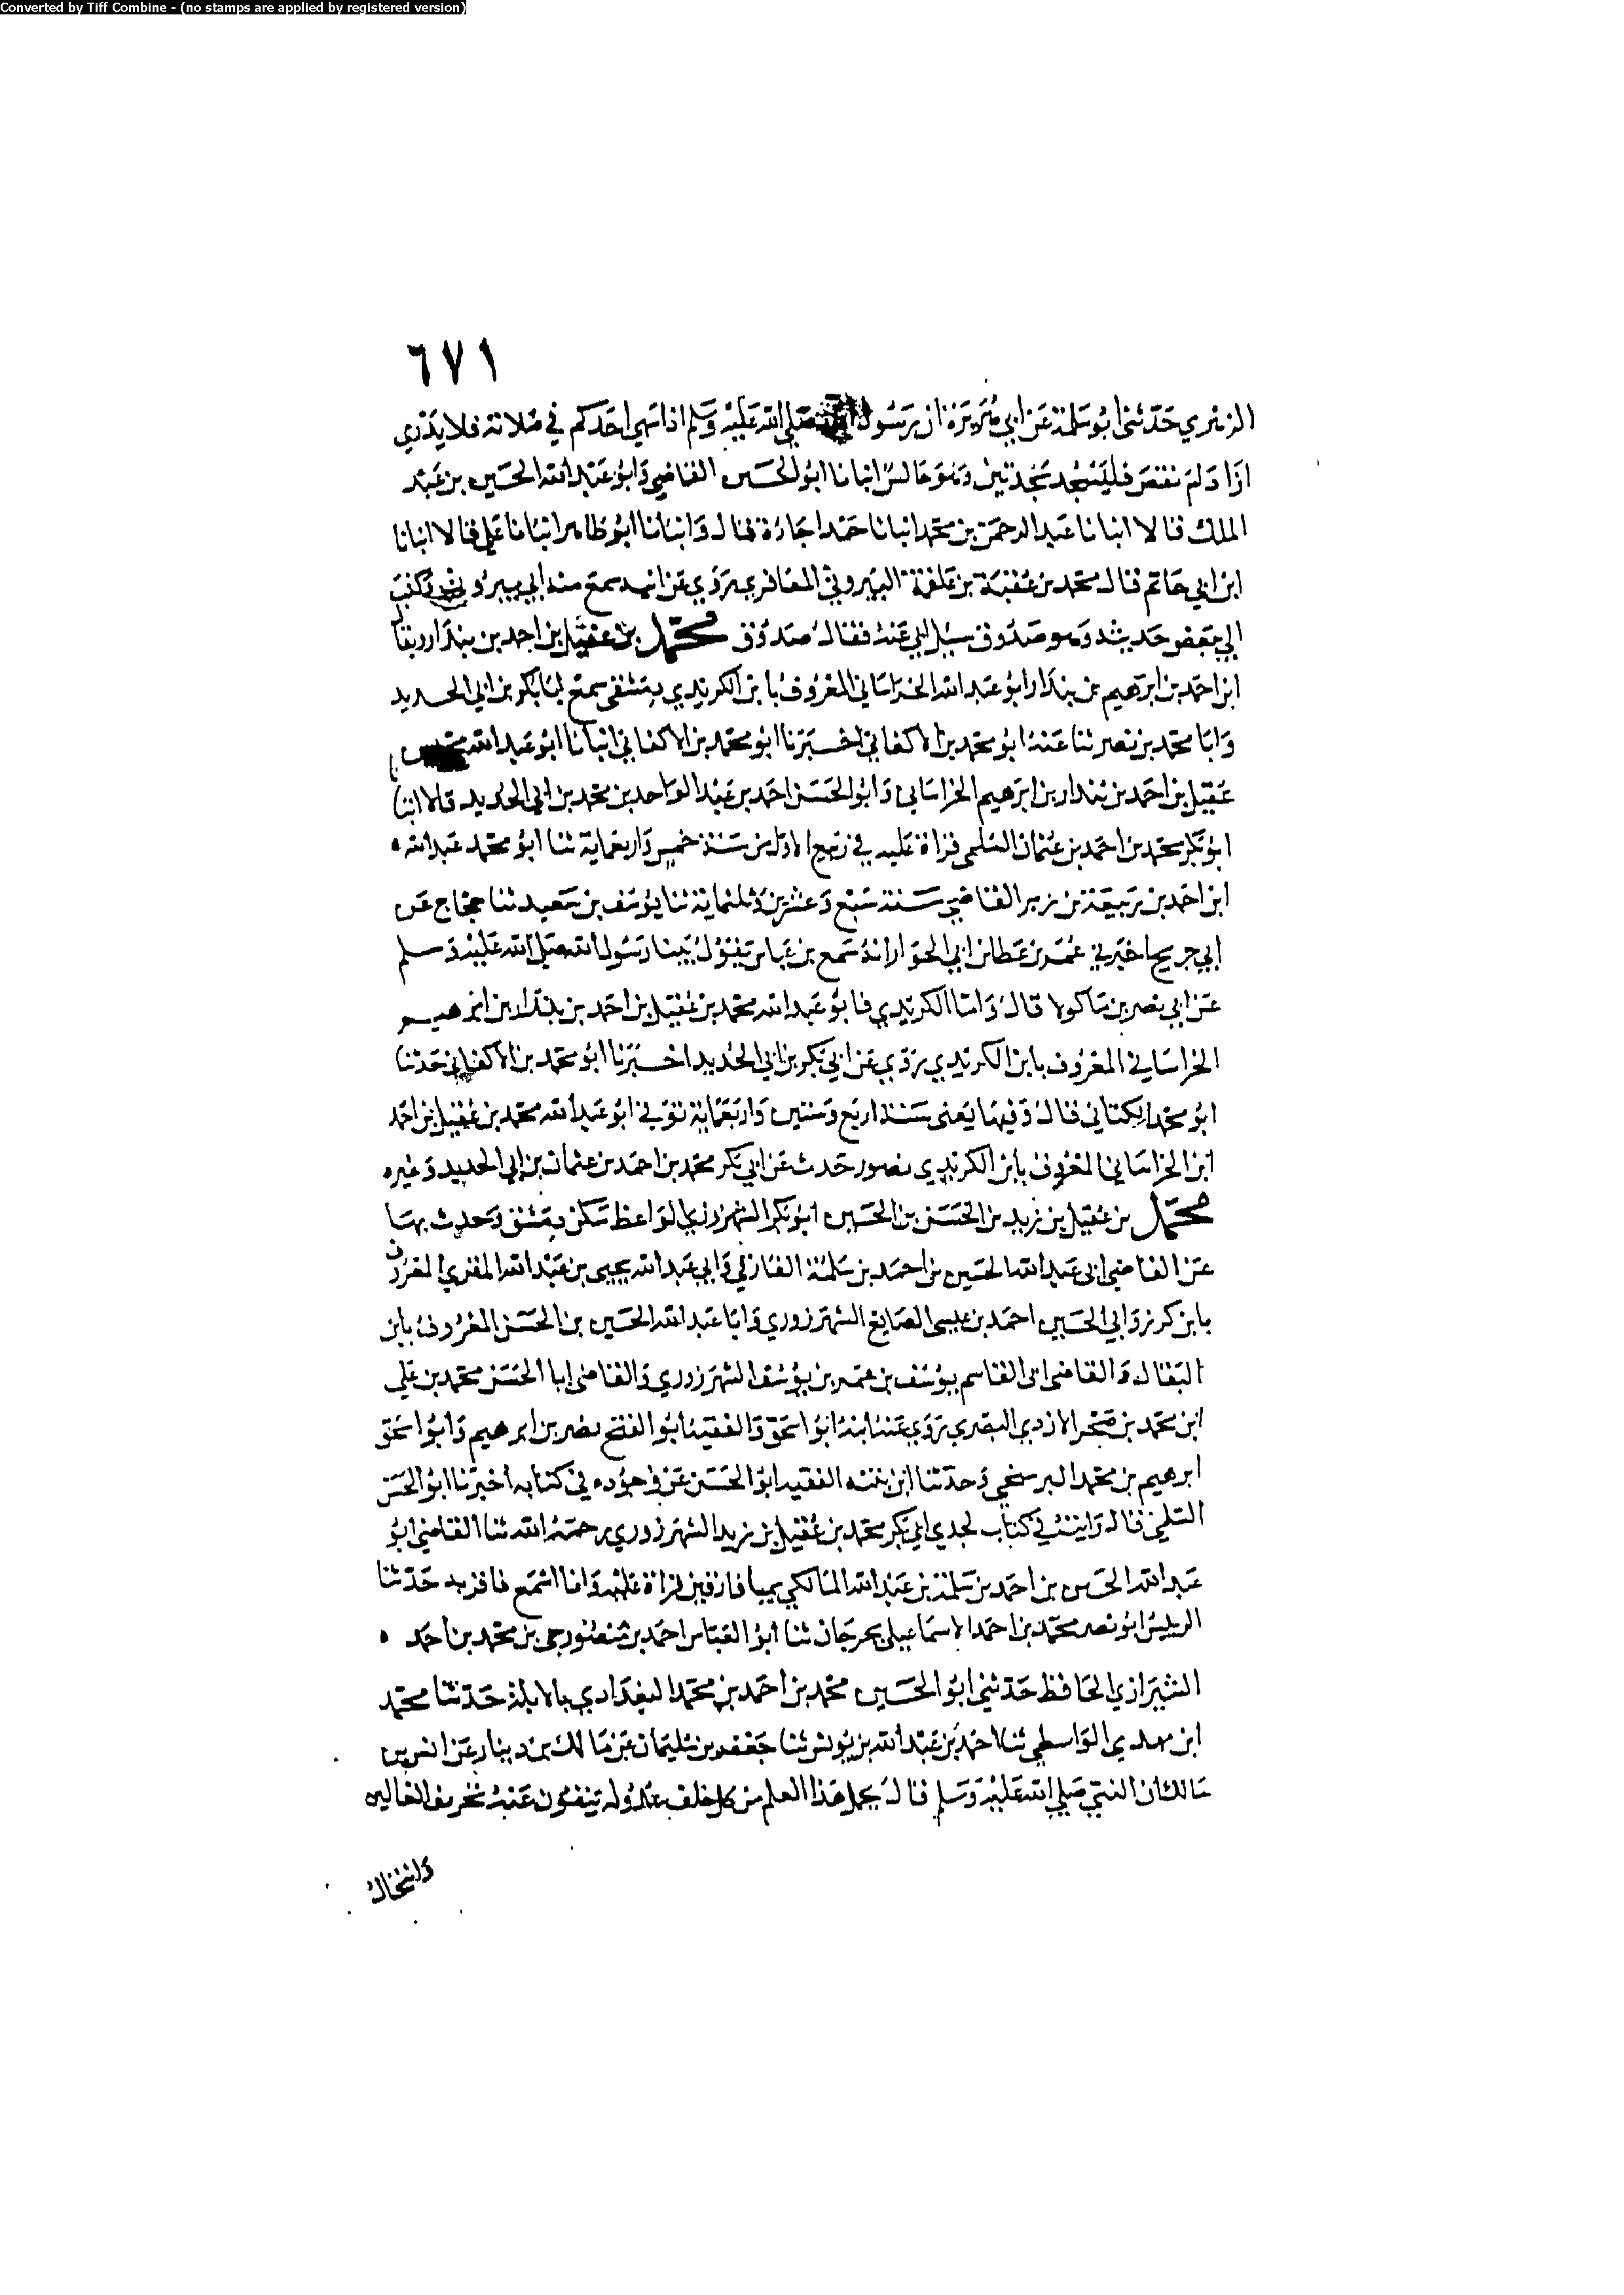 Converted by Tiff Combine - (no stamps are applied by registered version)
٦٧١
الزهري حدثني ابو سلمة عن ابي هريرة ان رسول الله صلى الله عليه وسلم اذا سهى احدكم في صلاته فلا يدري
ازاد ام نقص فليسجد سجدتين وهو جالس انبانا ابو الحسين القاضي وابو عبد الله الحسين بن عبد
الملك قالا انبانا عبد الرحمن بن محمد انبانا حمد اجازة قال وانبانا ابو طاهر انبانا علي قالا انبانا
ابن ابي حاتم قال محمد بن عقبة بن علقمة البيروتي المعافري يروي عن ابيه سمع منه ابي ببيروت وكتب
الي ببعض حديثه وهو صدوق سيل ابي عنه فقال صدوق محمد بن عقيل بن احمد بن بندار ويقال
ابن احمد بن ابرهيم بن بندار ابو عبد الله الخراساني المعروف بابن الكريدي دمشقي سمع ابا بكر بن ابي الحديد
وابا محمد بن نصر ثنا عنه ابو محمد بن الاكفاني اخبرنا ابو محمد بن الاكفاني انبانا ابو عبد الله محمد بن
عقيل بن احمد بن بندار بن ابرهيم الخراساني وابو الحسن احمد بن عبد الواحد بن محمد بن ابي الحديد قالا انبا
ابو بكر محمد بن احمد بن عثمان السلمي قراة عليه في ربيع الاول من سنة خمس واربعماية ثنا ابو محمد عبد الله
ابن احمد بن ربيعة بن زبر القاضي سنة سبع وعشرين وثلثماية ثنا يوسف بن سعيد ثنا حجاج عن
ابي جريج اخبرني عمر بن عطا بن ابي الحوار انه سمع بن عباس يقول بينا رسول الله صلى الله عليه وسلم
عن ابي نصر بن ماكولا قال واما الكريدي فابو عبد الله محمد بن عقيل بن احمد بن بندار بن ابرهيم
الخراساني المعروف بابن الكريدي يروي عن ابي بكر بن ابي الحديد اخبرنا ابو محمد بن الاكفاني حدثنا
ابو محمد الكتاني قال وفيها يعني سنة اربع وستين واربعماية توفي ابو عبد الله محمد بن عقيل بن احمد
ابن الخراساني المعروف بابن الكريدي بصور حدث عن ابي بكر محمد بن احمد بن عثمان بن ابي الحديد وغيره
محمد بن عقيل بن زيد بن الحسن بن الحسين ابو بكر الشهرزوري الواعظ سكن دمشق وحدث بها
عن القاضي ابي عبد الله الحسين بن احمد بن سلمة الفارقي وابي عبد الله يحيى بن عبد الله المقري المعروف
بابن كرز وابي الحسين احمد بن عيسى الصايغ الشهرزوري وابا عبد الله الحسين بن الحسن المعروف بابن
البقال والقاضي ابي القاسم يوسف بن عمر بن يوسف الشهرزوري والقاضي ابا الحسن محمد بن علي
ابن محمد بن صخر الازدي البصري روي عنه ابنه ابو اسحق والفقيه ابو الفتح نصر بن ابرهيم وابو اسحق
ابرهيم بن محمد وحدثنا ابن بنته الفقيه ابو الحسن عن وجوده في كتابه اخبرنا ابو الحسن
السلمي قال رايت في كتاب لجدي ابي بكر محمد بن عقيل بن زيد الشهرزوري رحمه الله ثنا القاضي ابو
عبد الله الحسين بن احمد بن سلمة بن عبد الله المالكي بميافارقين قراة عليه وانا اسمع فاقر به حدثنا
الرييس ابو نصر محمد بن احمد الاسماعيلي بجرجان ثنا ابو العباس احمد بن منصور بن محمد بن احمد
الشيرازي الحافظ حدثني ابو الحسين محمد بن احمد بن محمد البغدادي بالابلة حدثنا محمد
ابن مهدي الواسطي ثنا احمد بن عبد الله بن يونس ثنا جعفر بن سليمان عن مالك بن دينار عن انس بن
مالك ان النبي صلى الله عليه وسلم قال يحمل هذا العلم من كل خلف عدوله ينفون عنه تحريف الغالين
وانتحال